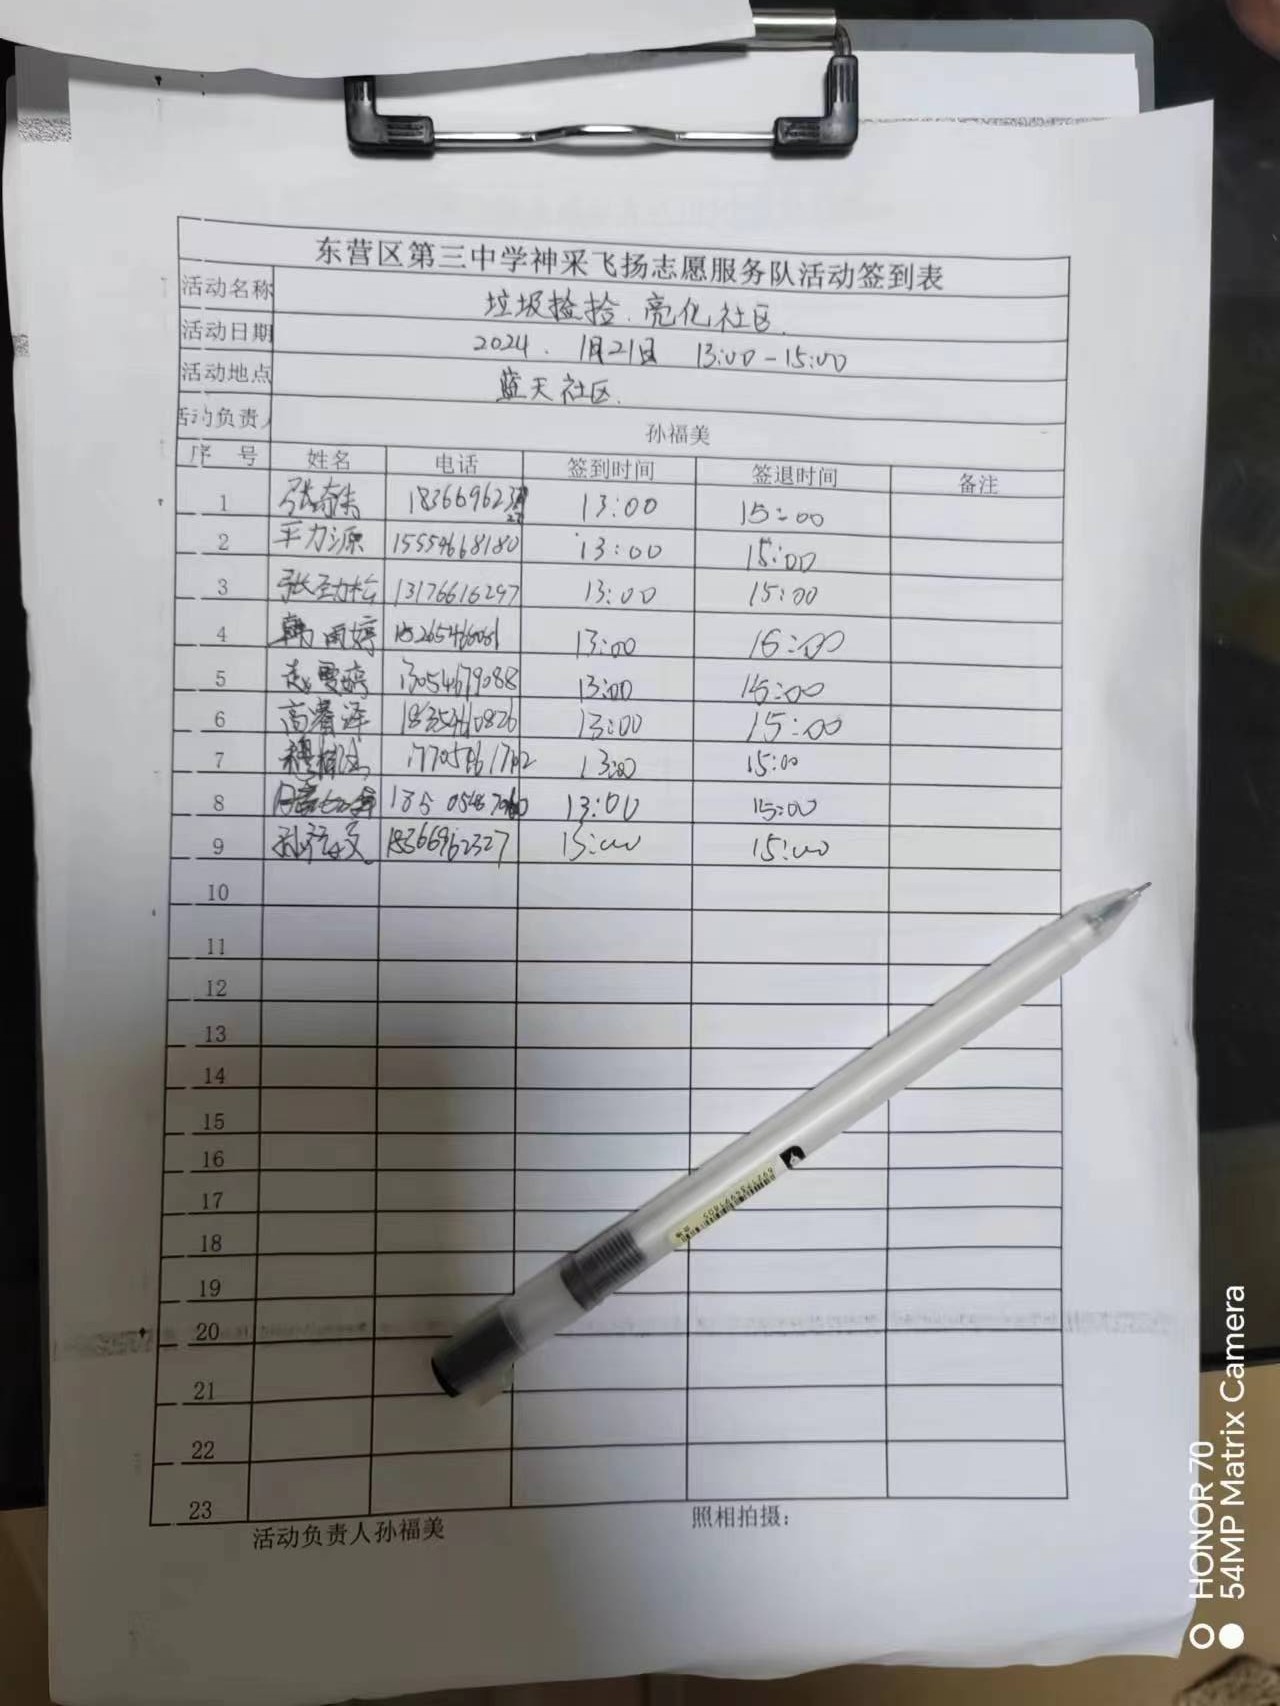 东营区第三中学神采飞扬志愿服务队活动签到表
活动名称 垃圾捡拾.亮化社区.
活动日期 2024. 1月21日 13:00-15:00
活动地点 蓝天社区.
活动负责人 孙福美
序 号 姓名 电话 签到时间 签退时间 备注
1 13:00 15:00
2 15554668180 13:00 15:00
3 张劲松 13176616297 13:00 15:00
4 韩雨婷 13:00 15:00
5 13054679088 13:00 15:00
6 高睿泽 13:00 15:00
7 13:00 15:00
8 13:00 15:00
9 18366962327 13:00 15:00
10
11
12
13
14
15
16
17
18
19
20
21
22
23
活动负责人孙福美 照相拍摄:
HONOR 70
54MP Matrix Camera